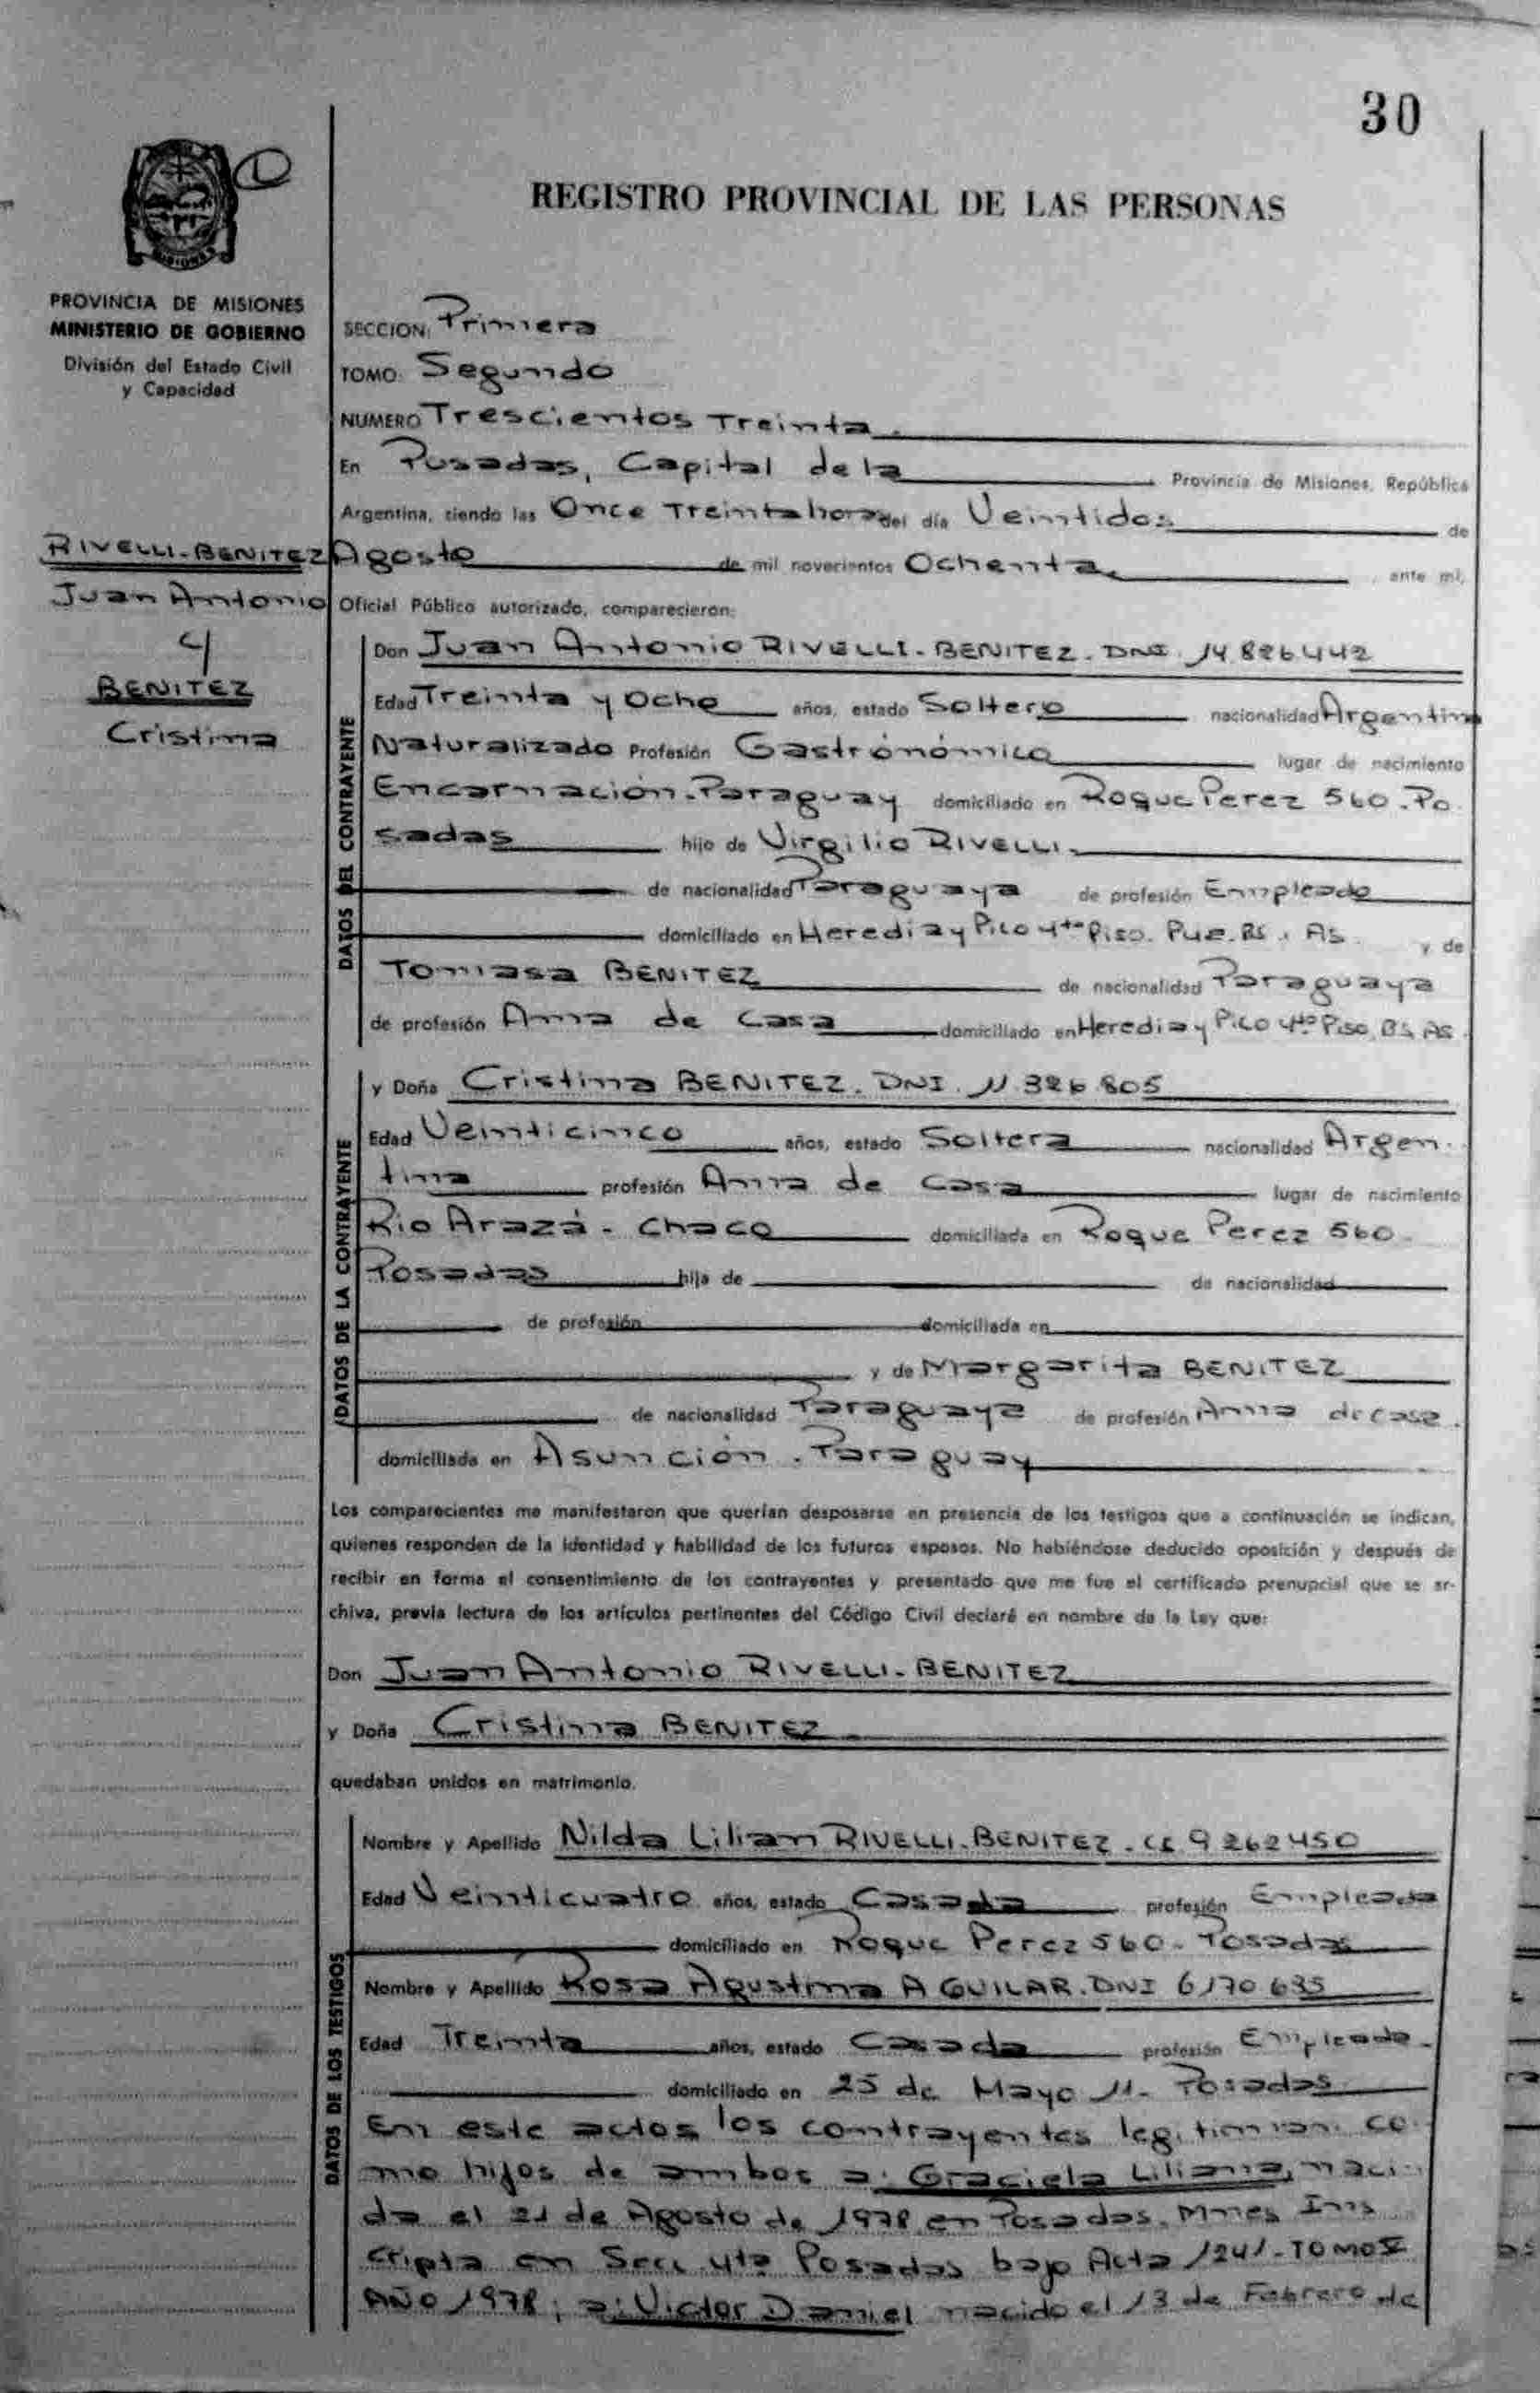 30
REGISTRO PROVINCIAL DE LAS PERSONAS
MISIONES
PROVINCIA DE MISIONES
MINISTERIO DE GOBIERNO
División del Estado Civil
y Capacidad
RIVELLI-BENITEZ
Juan Antonio
y
BENITEZ
Cristina
SECCION: Primera
TOMO: Segundo
NUMERO Trescientos Treinta.
En Posadas, Capital de la Provincia de Misiones, República
Argentina, siendo las Once Treinta horas del día Veintidos de
Agosto de mil novecientos Ochenta, ante mí,
Oficial Público autorizado, comparecieron:
DATOS DEL CONTRAYENTE
Don Juan Antonio RIVELLI-BENITEZ. DNI. 14.826.442
Edad Treinta y Ocho años, estado Soltero nacionalidad Argentino
Naturalizado Profesión Gastrónómico lugar de nacimiento
Encarnación-Paraguay domiciliado en Roque Perez 560-Po
sadas hijo de Virgilio RIVELLI.
de nacionalidad Paraguaya de profesión Empleado
domiciliado en Heredia y Pico 4to Piso. Bs. As. y de
Tomasa BENITEZ de nacionalidad Paraguaya
de profesión Ama de casa domiciliado en Heredia y Pico 4to Piso, Bs As.
DATOS DE LA CONTRAYENTE
y Doña Cristina BENITEZ. DNI. 11.326.805
Edad Veinticinco años, estado Soltera nacionalidad Argen-
tina profesión Ama de casa lugar de nacimiento
Rio Arazá - Chaco domiciliada en Roque Perez 560-
Posadas hija de de nacionalidad
de profesión domiciliada en
y de Margarita BENITEZ
de nacionalidad Paraguaya de profesión Ama de casa.
domiciliada en Asunción. Paraguay
Los comparecientes me manifestaron que querían desposarse en presencia de los testigos que a continuación se indican,
quienes responden de la identidad y habilidad de los futuros esposos. No habiéndose deducido oposición y después de
recibir en forma el consentimiento de los contrayentes y presentado que me fue el certificado prenupcial que se ar-
chiva, previa lectura de los artículos pertinentes del Código Civil declaré en nombre de la Ley que:
Don Juan Antonio RIVELLI-BENITEZ
y Doña Cristina BENITEZ
quedaban unidos en matrimonio.
DATOS DE LOS TESTIGOS
Nombre y Apellido Nilda Lilian RIVELLI-BENITEZ. 9262450
Edad Veinticuatro años, estado Casada profesión Empleada
domiciliado en Roque Perez 560-Posadas
Nombre y Apellido Rosa Agustina AGUILAR. DNI 6170.635
Edad Treinta años, estado Casada profesión Empleada.
domiciliado en 25 de Mayo 11- Posadas
En este actos los contrayentes legitiman co-
mo hijos de ambos a: Graciela Liliana, naci-
da el 21 de Agosto de 1978 en Posadas, Mnes Ins
cripta en Secc 4ta Posadas bajo Acta 1241-TOMO
AÑO 1978; a: Victor Daniel nacido el 13 de Febrero de